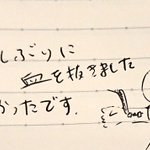 しぶりに
血を抜きました
かったです。